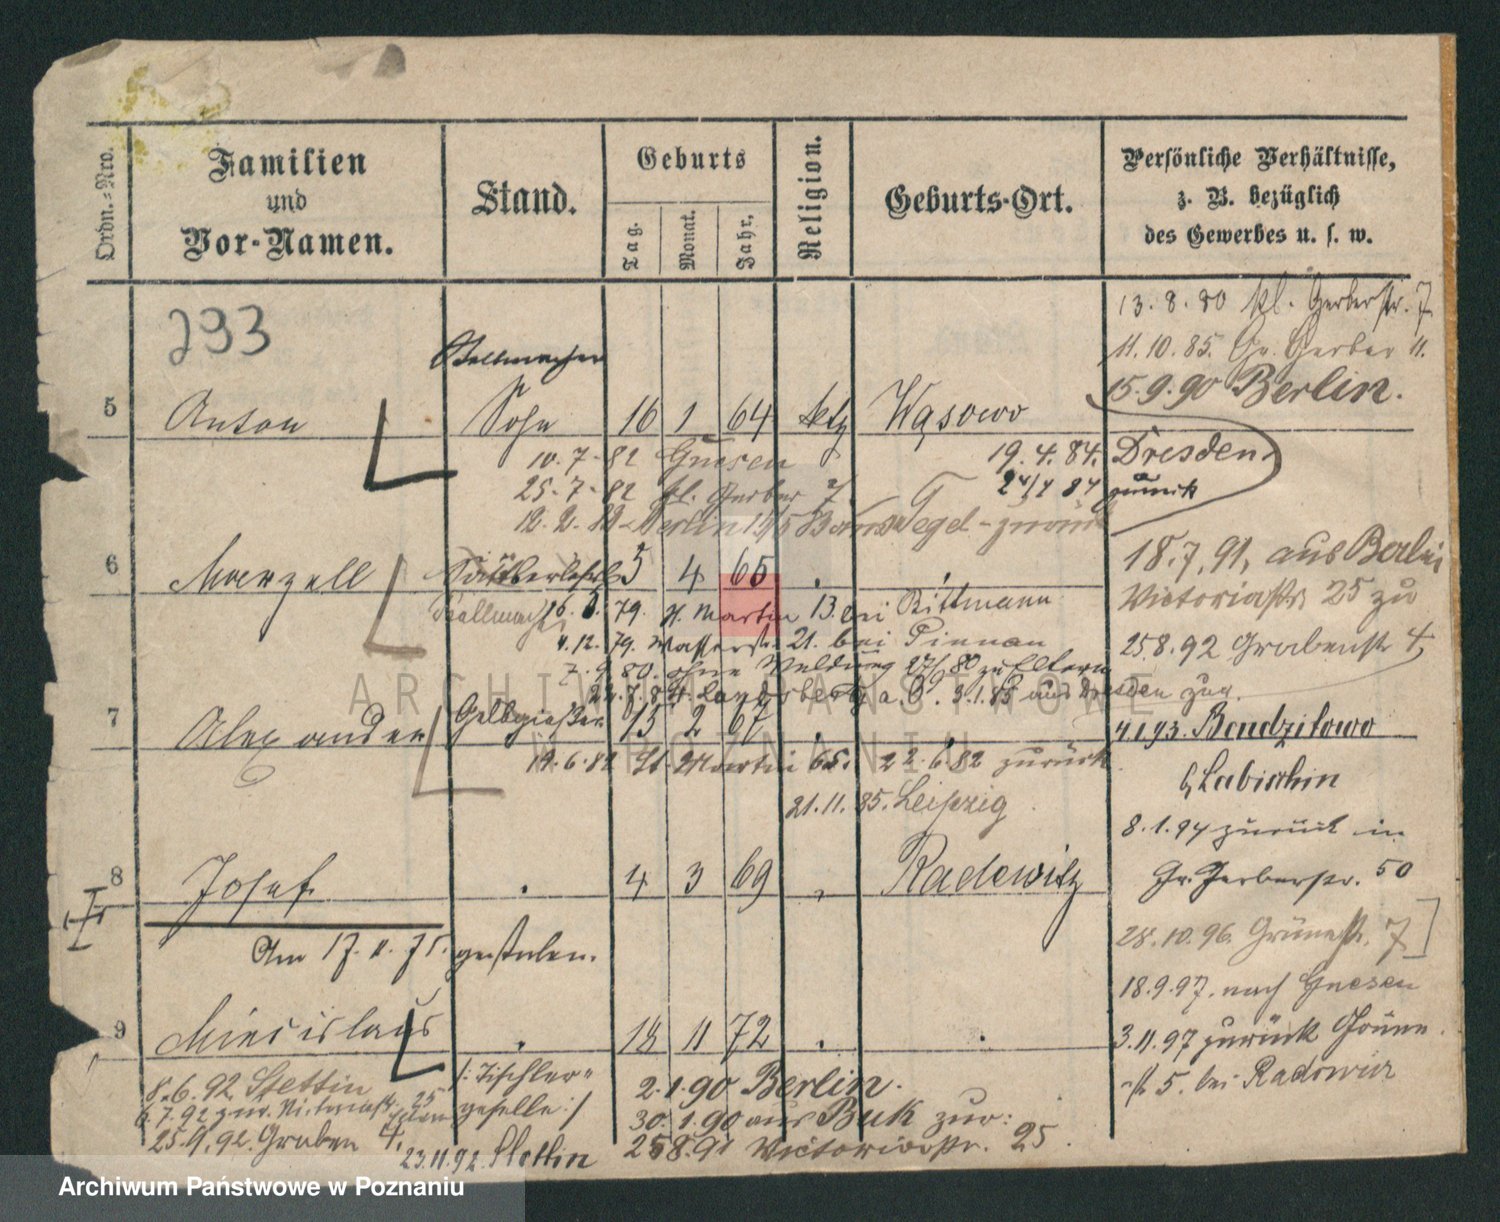 Ordn.-Nro.
Familien
und
Vor-Namen.
Stand.
Geburts
Tag.
Monat.
Jahr.
Religion.
Geburts-Ort.
Persönliche Verhältnisse,
z. B. bezüglich
des Gewerbes u. s. w.
293
13.8.80 kl. Gerberstr. 7
11.10.85. Gr. Gerber 11.
15.9.90 Berlin.
Stellmacher
5 Anton Sohn 16 1 64 ktz Wąsowo
10.7.82 Gnesen
25.7.82 kl. Gerber 7
19.4.84. Dresden
zurück
Berlin Tegel - zurück
6 Marzell 5 4 65
18.7.91, aus Berlin
Victoriastr 25 zu
25.8.92 Grabenstr 4
79. St. Martin 13. bei Bittmann
4.12.79. Wasserstr. 21. bei Pinnau
7.9.80. ohne Meldung 27/9 80 zu Eltern
Landsberg a. W. 3.1.85 aus Dresden zur.
7 Alexander Gelbgießer 15 2 67
19.6.82 St. Martin 65. 22.6.82 zurück
21.11.85. Leipzig
4.1.93. Bendzitowo
b/ Labischin
8.1.94 zurück in
Gr. Gerberstr. 50
8 Josef 4 3 69 Radewitz
Am 17. 11. 75. gestorben.
28.10.96. Grünestr. 7
18.9.97. nach Gnesen
3.11.97 zurück Grüne
str 5. bei Radowicz
9 Miecislaus 18 11 72
/: Tischler-
geselle :/
8.6.92 Stettin
6.7.92 zur. Victoriastr. 25
25.9.92. Graben 4.
23.11.92. Stettin
2.1.90 Berlin.
30.1.90 aus Buk zur:
25.8.91 Victoriastr. 25.
ARCHIWUM PAŃSTWOWE
W POZNANIU
Archiwum Państwowe w Poznaniu